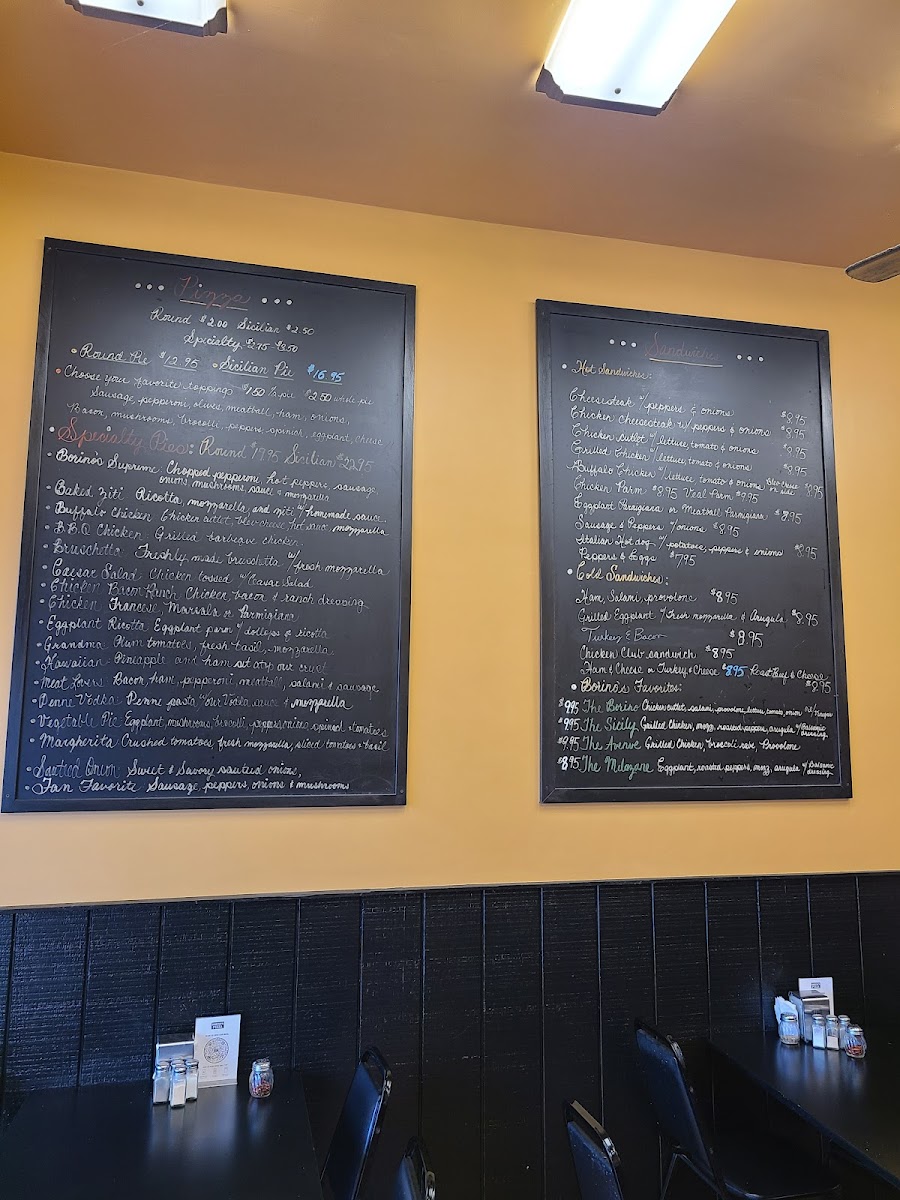 Pizza
Round $2.00 Sicilian $2.50
Specialty $2.75 - $3.50
Round Pie $12.95 Sicilian Pie $16.95
Choose your favorite toppings $1.50 ½ pie $2.50 whole pie
Sausage, pepperoni, olives, meatball, ham, onions,
Bacon, mushrooms, brocolli, peppers, spinich, eggplant, cheese
Specialty Pies: Round $17.95 Sicilian $22.95
Borino's Supreme: Chopped pepperoni, hot peppers, sausage,
onions, mushrooms, sauce & mozzarella
Baked Ziti Ricotta, mozzarella, and ziti w/ homemade sauce
Buffalo Chicken Chicken cutlet, bleu-cheese hot sauce mozzarella
B.B.Q Chicken Grilled barbeque chicken
Bruschetta Freshly made bruschetta w/ fresh mozzarella
Caesar Salad Chicken tossed w/ Caesar Salad
Chicken Bacon Ranch Chicken bacon & ranch dressing
Chicken Francese Marsala or Parmigiana
Eggplant Ricotta Eggplant parm w/ dollops of ricotta
Grandma Plum tomatoes, fresh basil, mozzarella
Hawaiian Pineapple and ham sit atop our crust
Meat Lovers Bacon, ham, pepperoni, meatball, salami & sausage
Penne Vodka Penne pasta w/ our Vodka sauce & mozzarella
Vegetable Pie Eggplant, mushrooms, broccoli, peppers, onions, spinach & tomatoes
Margherita Crushed tomatoes, fresh mozzarella, sliced tomatoes & basil
Sautéed Onion Sweet & Savory sautéed onions,
Fan Favorite Sausage, peppers, onions & mushrooms
Sandwiches
Hot Sandwiches:
Cheesesteak w/ peppers & onions $8.95
Chicken Cheesesteak w/ peppers & onions $8.95
Chicken cutlet w/ lettuce, tomato & onions $8.95
Grilled Chicken w/ lettuce, tomato & onions $8.95
Buffalo Chicken w/ lettuce tomato & onions Bleu cheese on side $8.95
Chicken Parm $8.95 Veal Parm $9.95
Eggplant Parmigiana or Meatball Parmigiana $8.95
Sausage & Peppers w/ onions $8.95
Italian Hot dog w/ potatoes, peppers & onions $8.95
Peppers & Eggs $7.95
Cold Sandwiches:
Ham, Salami, provolone $8.95
Grilled Eggplant w/ Fresh mozzarella & Arugula $8.95
Turkey & Bacon $8.95
Chicken Club sandwich $8.95
Ham & Cheese or Turkey & Cheese $8.95 Roast Beef & Cheese $8.95
Borino's Favorites:
$9.95 The Borino Chicken cutlet, salami, provolone, lettuce, tomato, onion
$9.95 The Sicily Grilled Chicken, mozz, roasted peppers, arugula w/ Balsamic dressing
$9.95 The Avenue Grilled Chicken, broccoli rabe Provolone
$8.95 The Milazane Eggplant, roasted peppers, mozz, arugula w/ Balsamic dressing